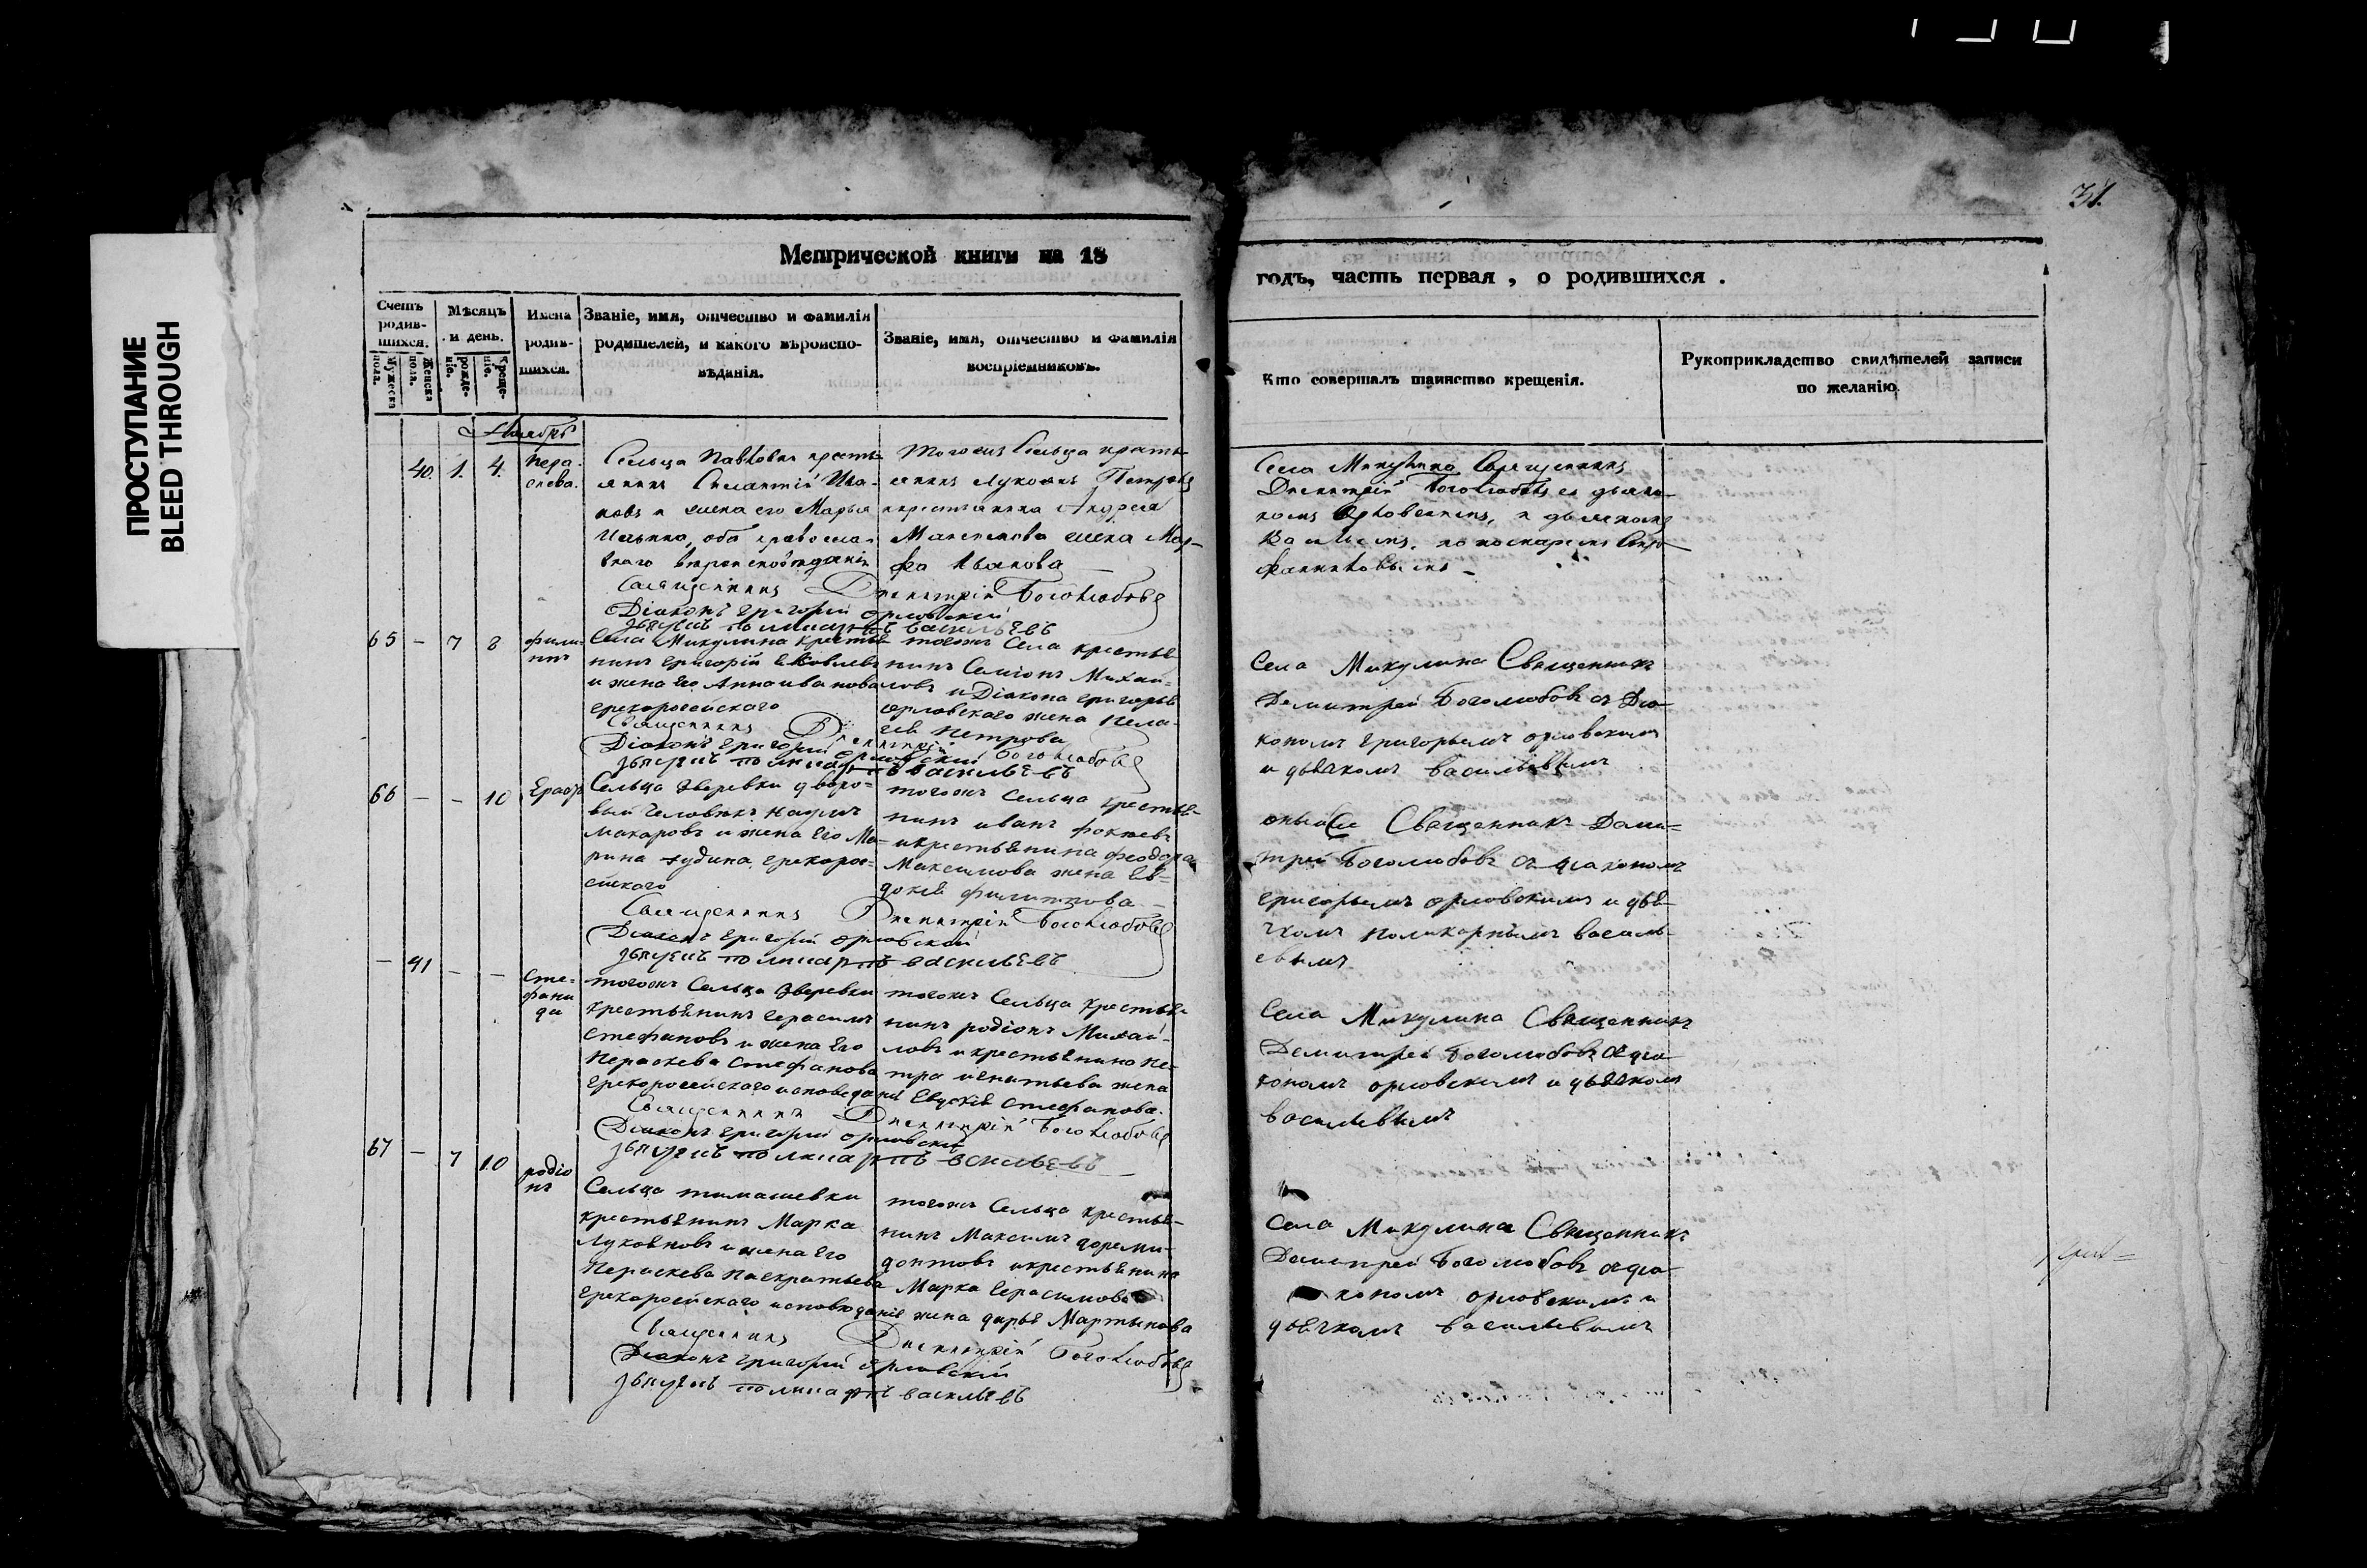 ПРОСТУПАНИЕ
BLEED THROUGH
31.
Метрической книги на 18
годъ, часть первая, о родившихся.
Счетъ родив-шихся.
Мѣсяцъ и день.
Имена родив-шихся.
Званіе, имя, отчество и фамилія родителей, и какого вѣроиспо-вѣданія.
Званіе, имя, отчество и фамилія воспріемниковъ.
Мужеска пола.
Женска пола.
рожде-ніе.
креще-ніе.
Кто совершалъ таинство крещенія.
Рукоприкладство свидѣтелей записи по желанію.
40. 1. 4.
Пера-
скева.
Сельца Павловки кресть-
янинъ
новъ и жена его Марья
оба православ-
наго вѣроисповѣданія
Священникъ Димитрій Боголюбовъ
Діаконъ григорій орловскій
дьячекъ поликарпъ васильевъ
Тогожъ Сельца кресть-
янинъ Лукьянъ Петровъ
крестьянина Андрея
жена Мар-
фа Иванова
Села Микулина Священникъ
Димитрій Боголюбовъ съ діако-
номъ Орловскимъ, и дьячкомъ
65 — 7 8
фили-
пъ
Села Микулина крестья-
нинъ григорій Яковлевъ
и жена Его Анна иванова
грекоросейскаго
Священникъ Димитрій Боголюбовъ
Діаконъ григорій орловскій
дьячекъ поликарпъ васильевъ
тогожъ Села крестья-
нинъ Семіонъ Михай-
ловъ и Діакона григорья
орловскаго жена Пела-
гея Петрова
Села Микулина Священникъ
Демитрей Боголюбовъ съ Діа-
кономъ григорьемъ орловскимъ
и дьячкомъ васильевымъ
66 — — 10
Сельца Зверевки дворо-
вый человекъ наумъ
макаровъ и жена Его Ма-
рина юдина грекорос-
сійскаго
Священникъ Димитрій Боголюбовъ
Діаконъ григорій орловскій
дьячекъ поликарпъ васильевъ
тогожъ Сельца крестья-
нинъ иванъ фокеевъ
и крестьянина феодора
Максимова жена Ев-
докея филипова
Священникъ Деми-
трей Боголюбовъ съ діакономъ
григорьемъ орловскимъ и дья-
чкомъ поликарпымъ василь-
евымъ
— 41 — —
Сте-
фани
да
тогожъ Сельца Зверевки
крестьянинъ герасимъ
Стефановъ и жена Его
Пераскева Стефанова
грекоросейскаго исповеданія
Священникъ Димитрій Боголюбовъ
Діаконъ григорій орловскій
дьячекъ поликарпъ васильевъ
тогожъ Сельца крестья-
нинъ родіонъ Михай-
ловъ и крестьянина Пе-
тра игнатьева жена
Евдокея Стефанова.
Села Микулина Священникъ
Демитрей Боголюбовъ съ діа-
кономъ орловскимъ и дьячкомъ
васильевымъ
67 — 7 10
родіо
нъ
Сельца тимашевки
крестьянинъ Марка
Лукояновъ и жена Его
Пераскева Панкратьева
грекоросейскаго исповеданія
Священникъ Димитрій Боголюбовъ
Діаконъ григорій орловскій
дьячекъ поликарпъ васильевъ
тогожъ Сельца крестья-
нинъ Максимъ дореми-
донтовъ и крестьянина
Марка Герасимова
жена дарья Мартынова
Села Микулина Священникъ
Демитрей Боголюбовъ съ діа-
кономъ орловскимъ и
дьячкомъ васильевымъ